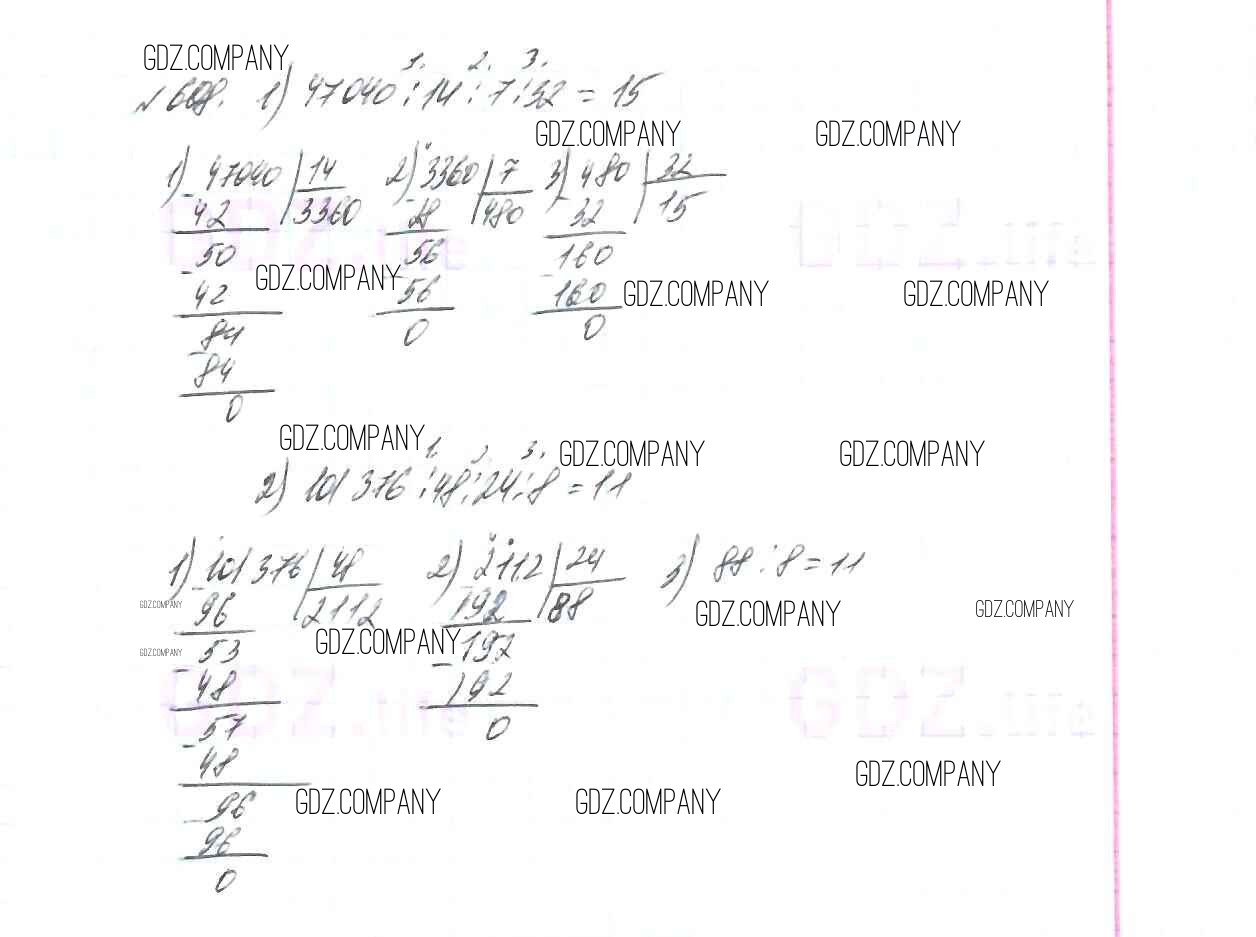 GDZ.COMPANY
1. 2. 3.
№608. 1) 47040 : 14 : 7 : 32 = 15
GDZ.COMPANY GDZ.COMPANY
1) 47040 | 14 2) 3360 | 7 3) 480 | 32
- 42 | 3360 - 28 | 480 - 32 | 15
50 56 160
GDZ.COMPANY
- 42 56 - 160
GDZ.COMPANY GDZ.COMPANY
84 0 0
- 84
0
GDZ.COMPANY GDZ.COMPANY GDZ.COMPANY
1. 2. 3.
2) 101 376 : 48 : 24 : 8 = 11
1) 101 376 | 48 2) 2112 | 24 3) 88 : 8 = 11
- 96 | 2112 - 192 | 88
GDZ.COMPANY GDZ.COMPANY GDZ.COMPANY
53 192
GDZ.COMPANY GDZ.COMPANY
- 48 - 192
GDZ.life GDZ.life
57 0
- 48
GDZ.COMPANY
GDZ.COMPANY GDZ.COMPANY
96
- 96
0